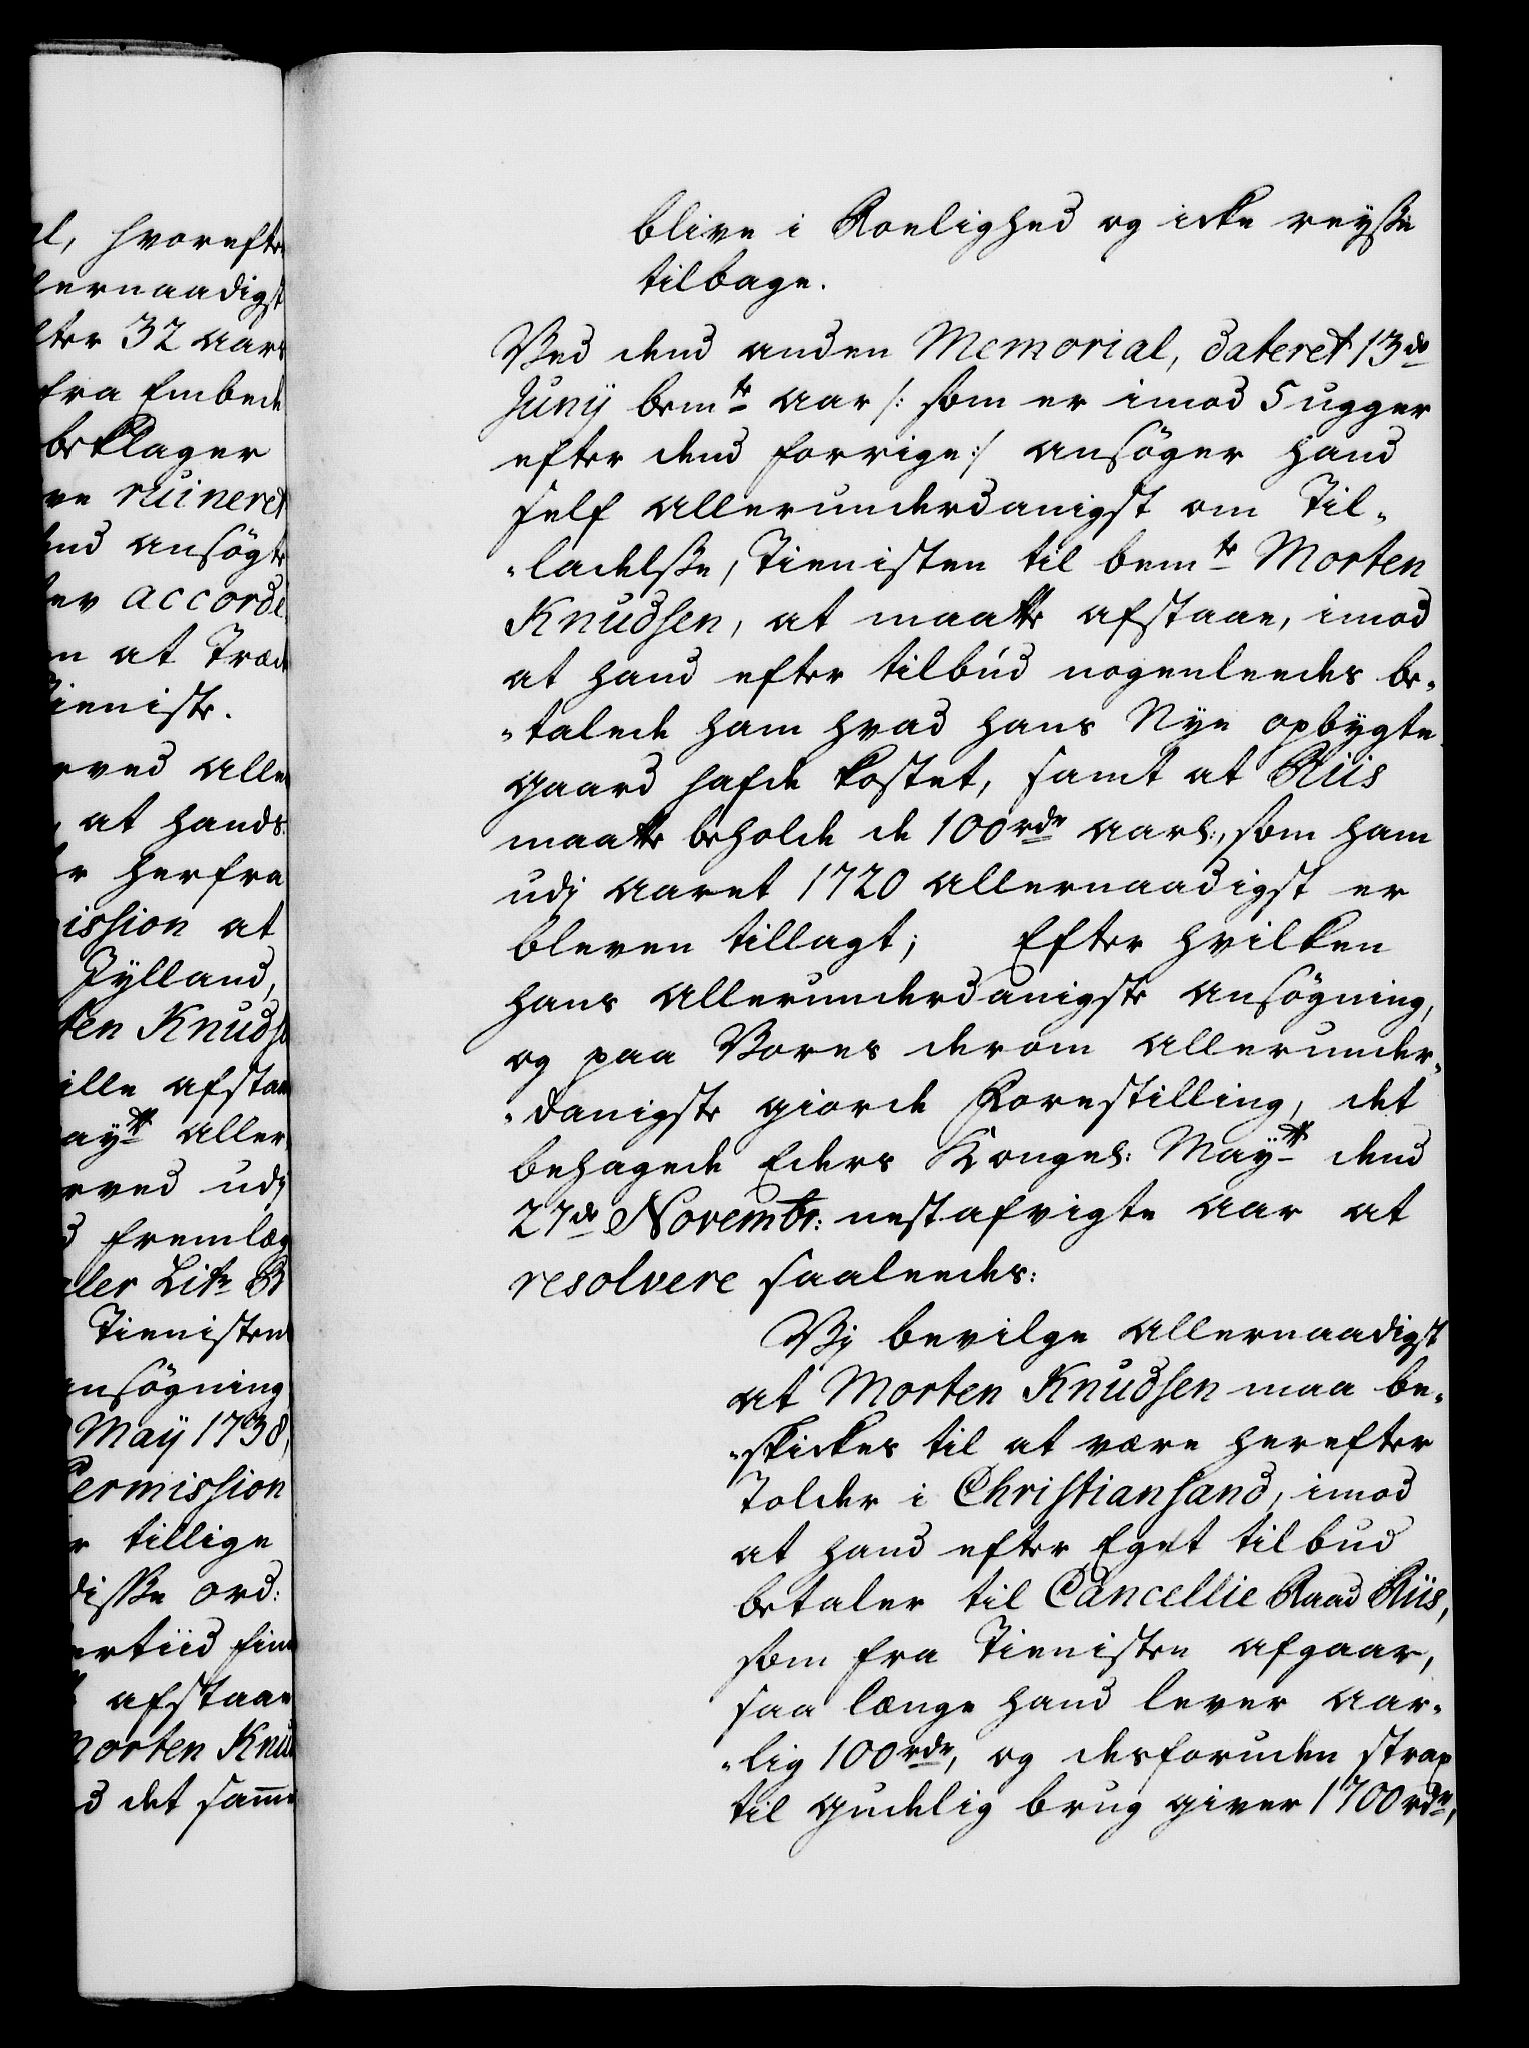 l, hvorefter
lernaadigst
fter 32 Aars
fra Embede
beklager
ve ruineret
end ansøgte
ev accorde
n at Træde
ieniste.
rved Aller
, at hands
r herfra
ission at
Jylland,
ten Knuds
ille afstaa
ayᵗᵗ Aller
rved udj
d fremlæg
ler Litr B
Tienisten
Ansøgning
May 1738,
Permission
r tillige
disse ord:
ertiid fin
afstaae
Morten Knud
d det samme
blive i Roelighed og icke reysse
tilbage.
Ved dend anden Memorial, dateret 13de
Juny bemte Aar /: som er imod 5 ugger
efter dend forrige :/ ansøger hand
self Allerunderdanigst om Til-
-ladelsse, Tienisten til bemte Morten
Knudsen, at maatte afstaae, imod
at hand efter tilbud nogenleedes be-
-talede ham hvad hans Nye opbygte
Gaard hafde kostet, samt at Riis
maatte beholde de 100 rdr Aarl:, som ham
udj Aaret 1720 Allernaadigst er
bleven tillagt; Efter hvilken
hans Allerunderdanigste Ansøgning,
og paa Vores derom Allerunder-
-danigste giorde Forestilling, det
behagede Eders Kongel: Mayᵗᵗ dend
27de Novembr: nestafvigte Aar at
resolvere saaleedes:
Vj bevilge Allernaadigst
at Morten Knudsen maa be-
-skickes til at være herefter
Tolder i Christiansand, imod
at hand efter Eget tilbud
betaler til Cancellie Raad Riis,
som fra Tienisten afgaar,
saa længe hand lever Aar-
-lig 100 rdr, og desforuden strax
til Gudelig brug giver 1700 rdr,